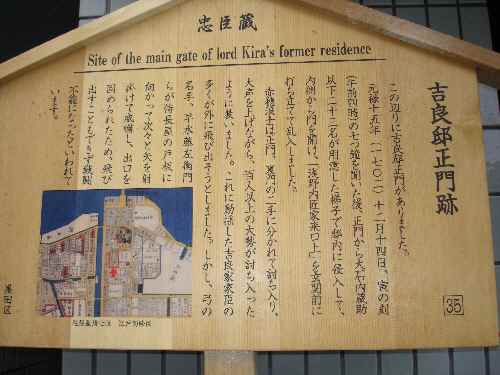 忠臣蔵
Site of the main gate of lord Kira's former residence
吉良邸正門跡
この辺りに吉良邸正門がありました。
元禄十五年(一七〇二)十二月十四日、寅の刻
(午前四時)の七つ鐘を聞いた後、正門から大石内蔵助
以下二十三名が用意した梯子で邸内に侵入して、
内側から門を開け、「浅野内匠家来口上」を玄関前に
打ち立てて乱入しました。
赤穂浪士は正門、裏門の二手に分かれて討ち入り、
大声を上げながら、百人以上の大勢が討ち入った
ように装いました。これに動揺した吉良家家臣の
多くが外に飛び出そうとしました。しかし、弓の
名手、早水藤左衛門
らが侍長屋の戸板に
向かって次々と矢を射
掛けて威嚇し、出口を
固められたため、飛び
出すこともできず戦闘
不能になったといわれて
います。
35
墨田区